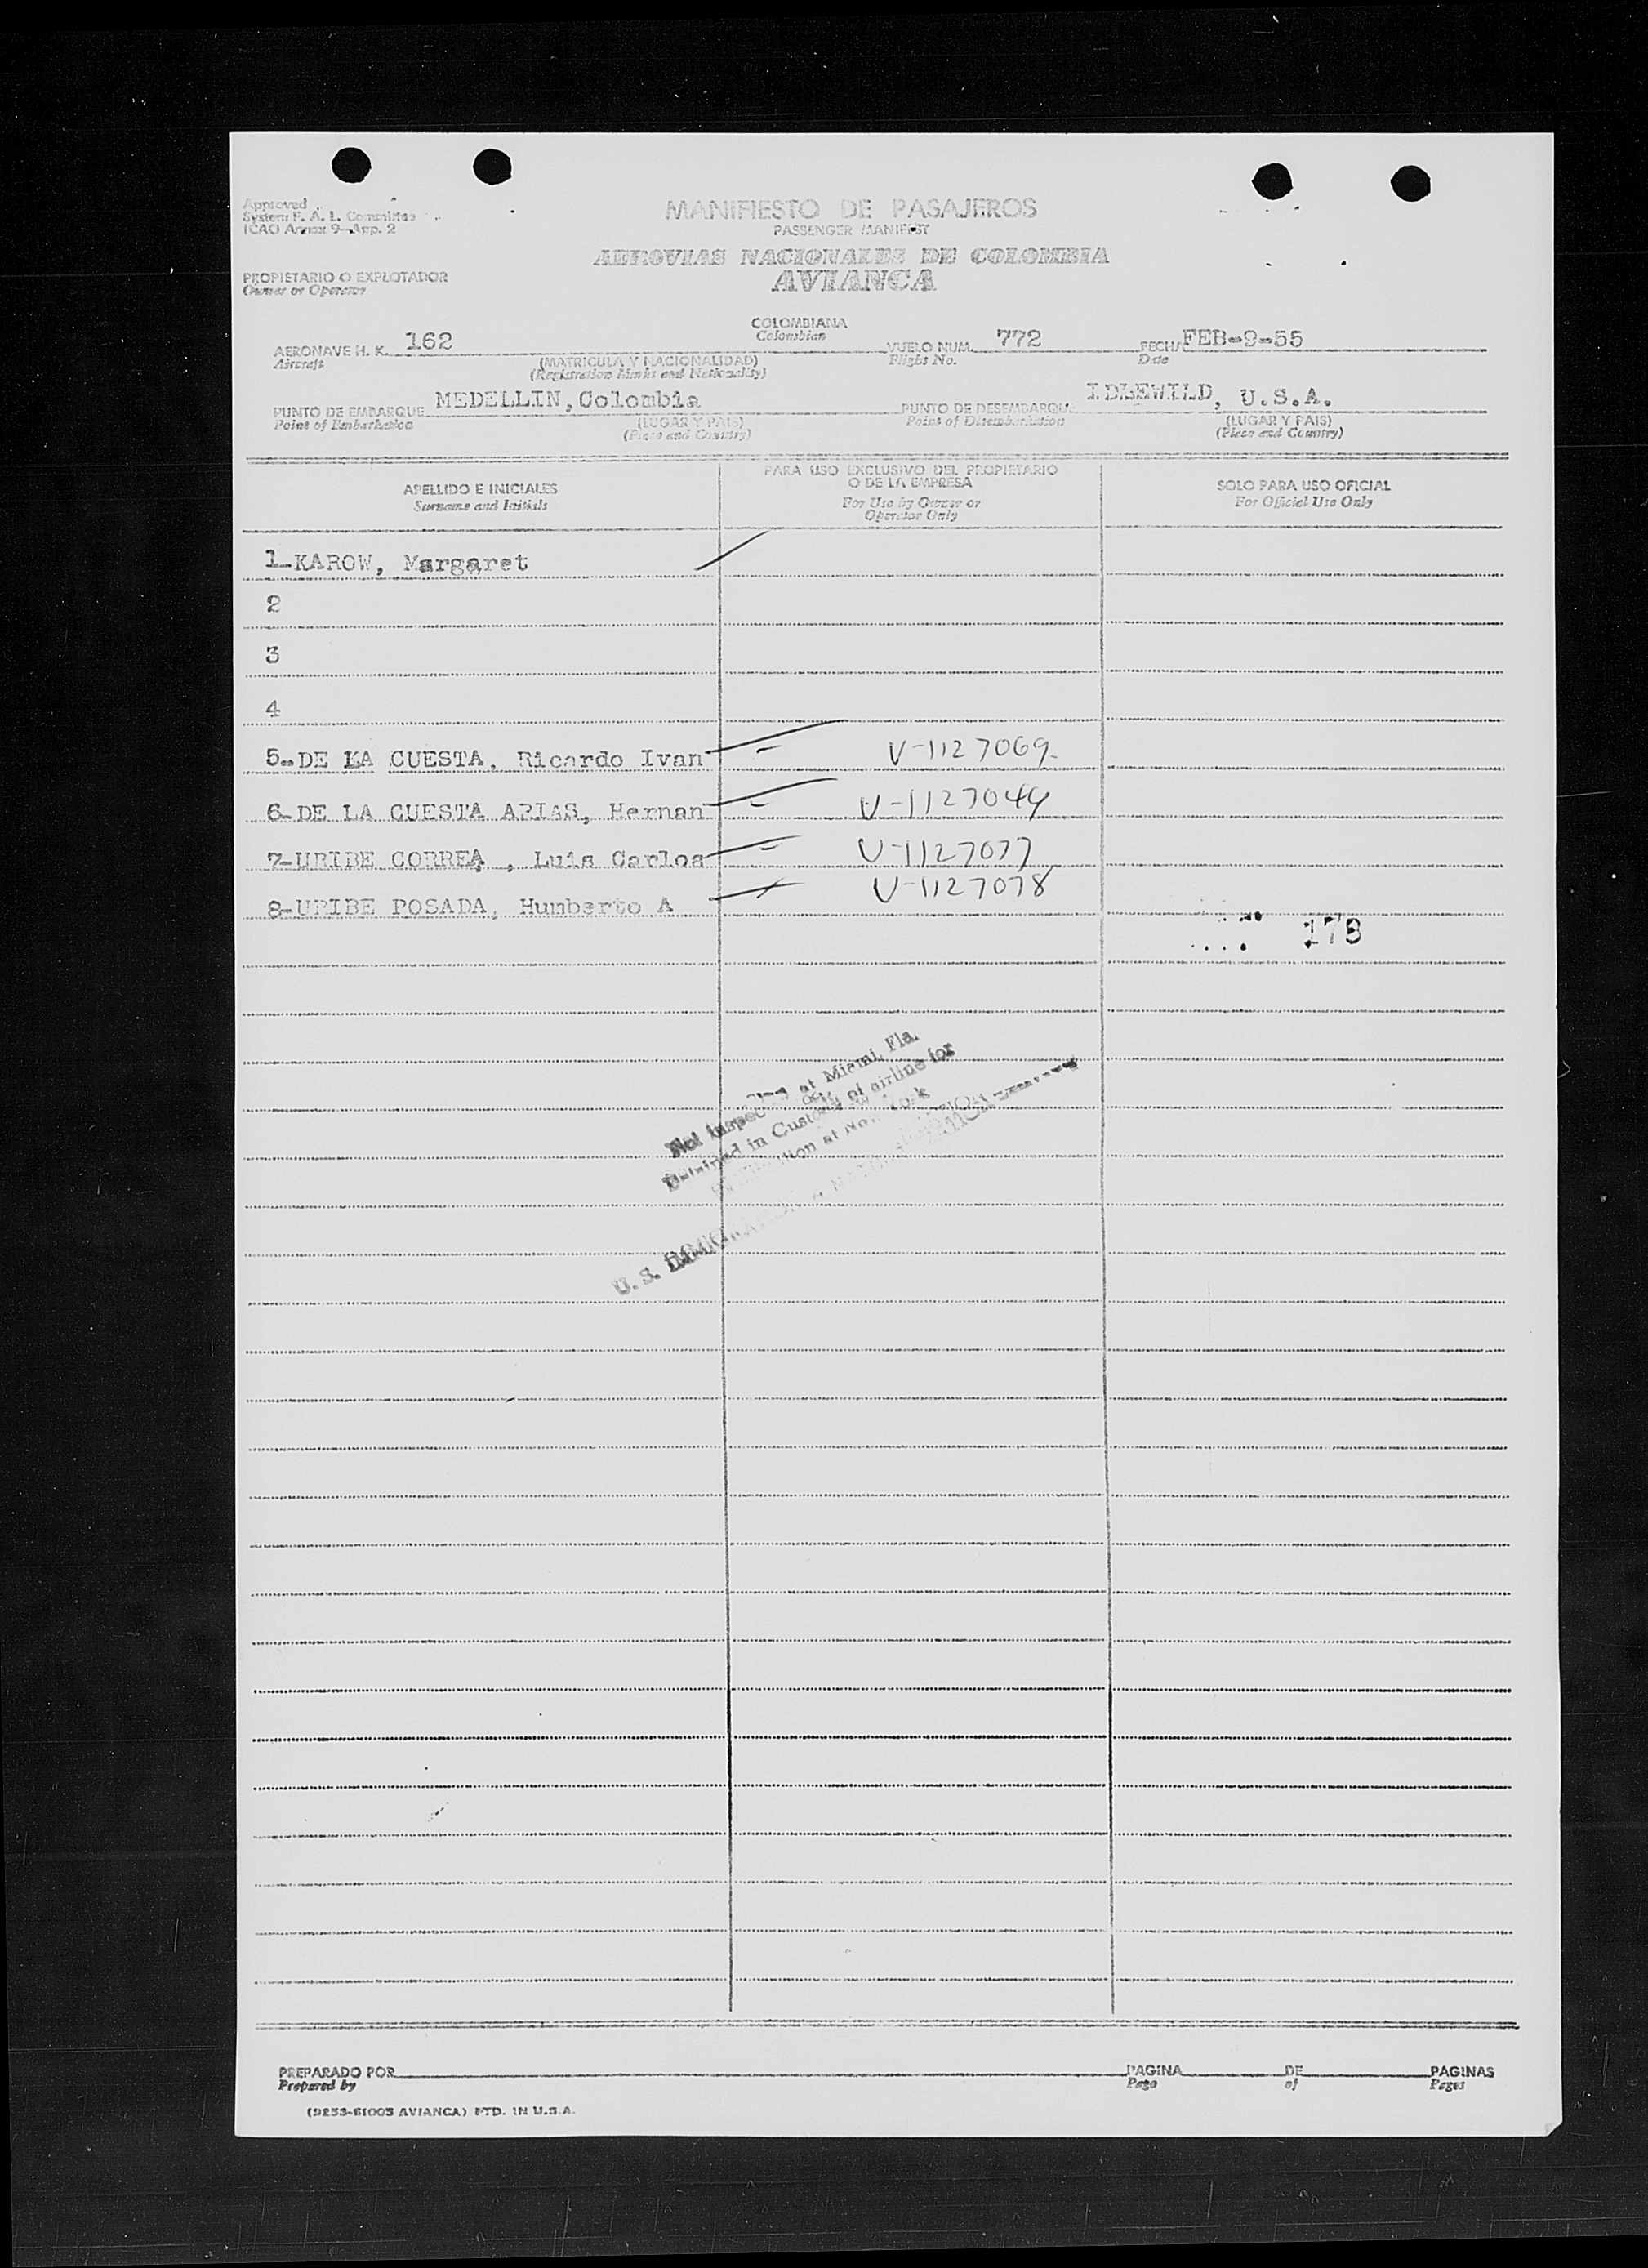 Approved
System F. A. L. Committee
ICAO Annex 9-App. 2
MANIFIESTO DE PASAJEROS
PASSENGER MANIFEST
AEROVIAS NACIONALES DE COLOMBIA
AVIANCA
PROPIETARIO O EXPLOTADOR
Owner or Operator
COLOMBIANA
Colombian
AERONAVE H. K. 162 VUELO NUM. 772 FECHA FEB-9-55
Aircraft (MATRICULA Y NACIONALIDAD) Flight No. Date
(Registration Marks and Nationality)
PUNTO DE EMBARQUE MEDELLIN, Colombia PUNTO DE DESEMBARQUE IDLEWILD, U.S.A.
Point of Embarkation (LUGAR Y PAIS) Point of Disembarkation (LUGAR Y PAIS)
(Place and Country) (Place and Country)
APELLIDO E INICIALES
Surname and Initials
PARA USO EXCLUSIVO DEL PROPIETARIO
O DE LA EMPRESA
For Use by Owner or
Operator Only
SOLO PARA USO OFICIAL
For Official Use Only
1-KAROW, Margaret
2
3
4
5-DE LA CUESTA, Ricardo Ivan - V-1127069-
6-DE LA CUESTA ARIAS, Hernan - V-1127044
7-URIBE CORREA , Luis Carlos - V-1127077
8-URIBE POSADA, Humberto A V-1127078
178
Not Inspected at Miami, Fla.
Detained in Custody of airline for
at New York
U. S.
PREPARADO POR PAGINA DE PAGINAS
Prepared by Page of Pages
(9253-61005 AVIANCA) PTD. IN U.S.A.